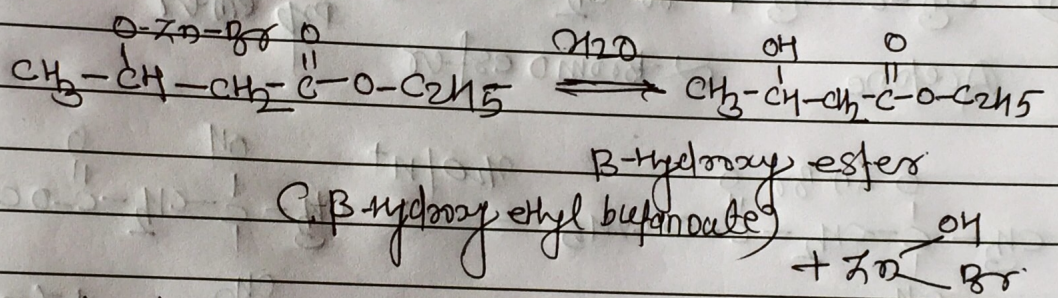 O-Zn-Br O
CH3-CH-CH2-C-O-C2H5 H2O ⇌ CH3-CH-CH2-C-O-C2H5
OH O
β-Hydroxy ester
(β-Hydroxy ethyl butanoate)
+ Zn OH Br